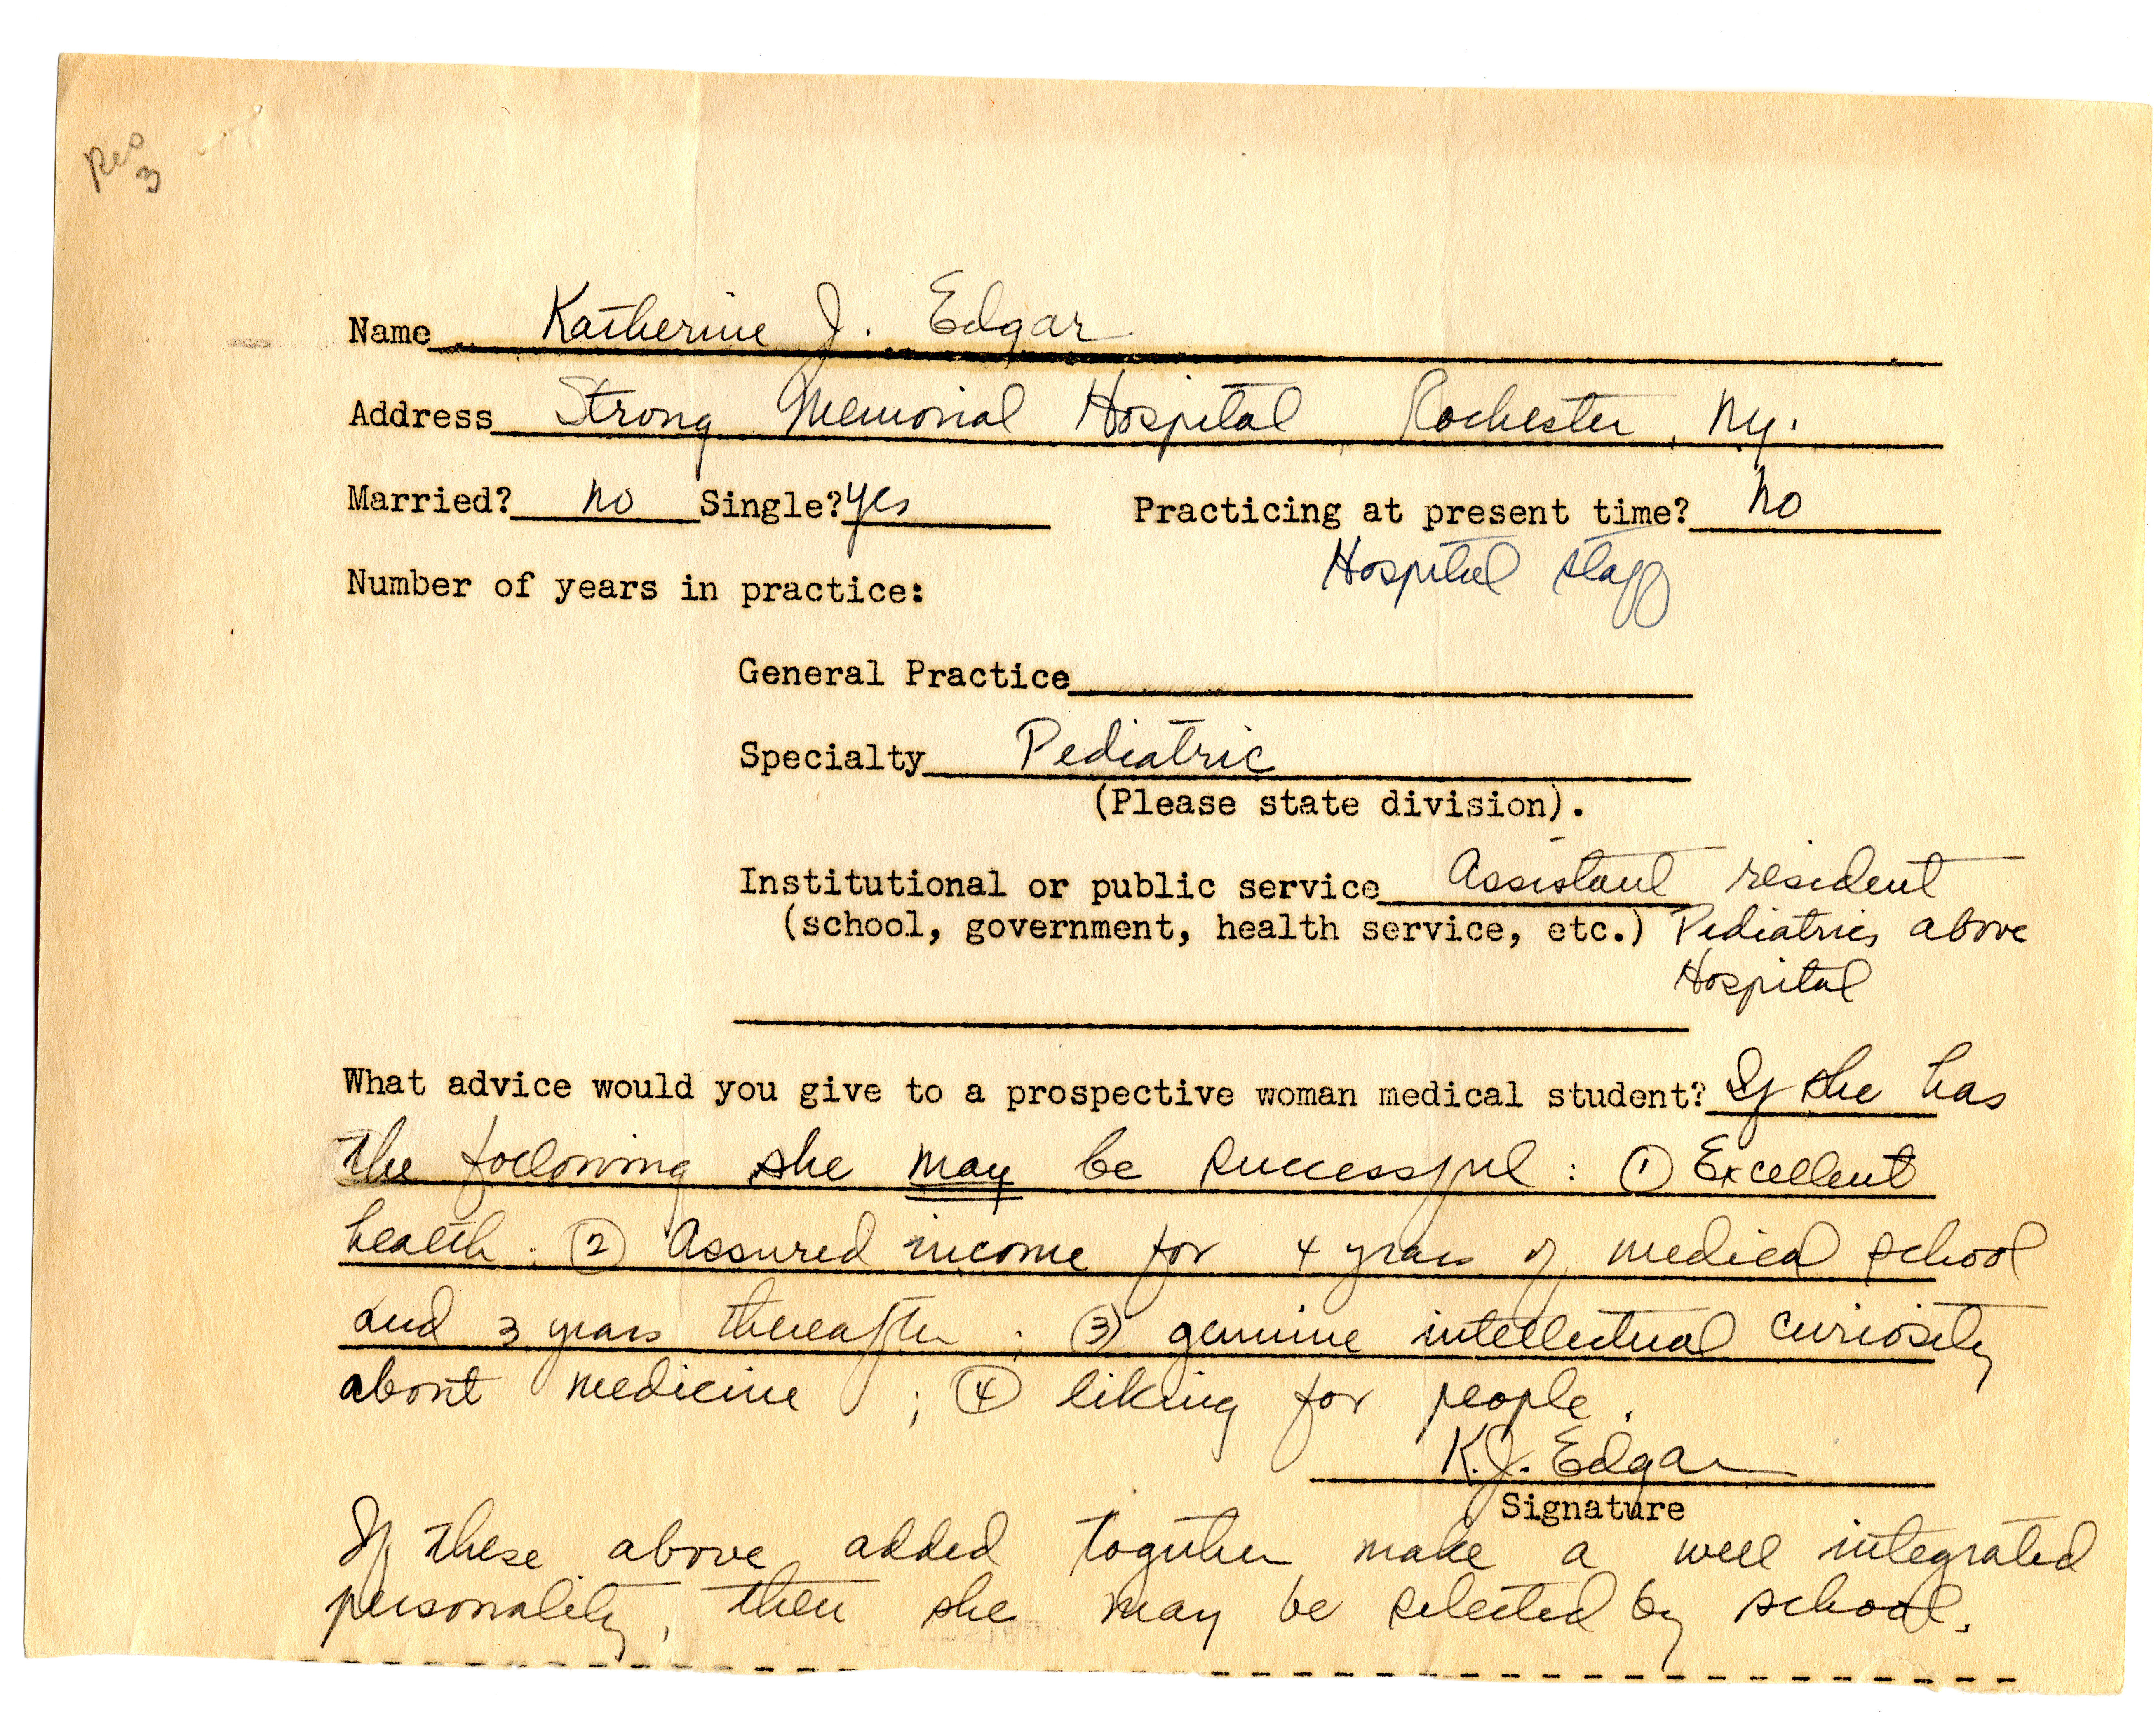 Rec
3
Name Katherine J. Edgar
Address Strong Memorial Hospital Rochester, Ny.
Married? no Single? yes Practicing at present time? no
Hospital staff
Number of years in practice:
General Practice
Specialty Pediatric
(Please state division).
Institutional or public service Assistant resident
(school, government, health service, etc.) Pediatrics above
Hospital
What advice would you give to a prospective woman medical student? If she has
the following she may be successful: ① Excellent
health. ② Assured income for 4 years of medical school
and 3 years thereafter; ③ genuine intellectual curiosity
about medicine; ④ liking for people.
K.J. Edgar
Signature
If these above added together make a well integrated
personality, then she may be selected by school.